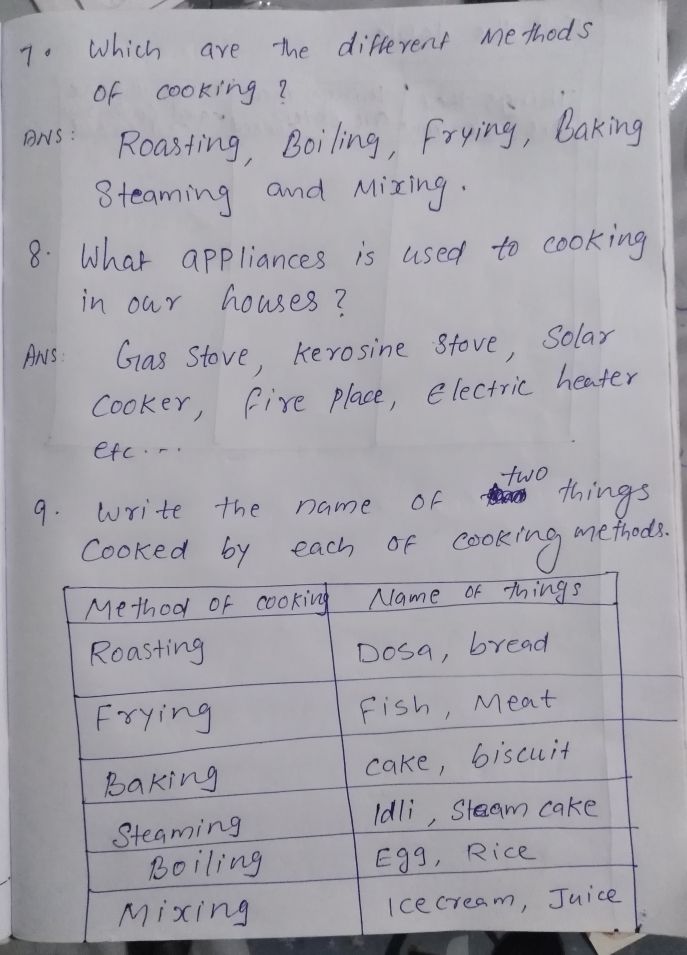 7. Which are the different Methods
of cooking ?
ANS: Roasting, Boiling, Frying, Baking
Steaming and Mixing.
8. What appliances is used to cooking
in our houses ?
ANS: Gas Stove, Kerosine Stove, Solar
Cooker, fire place, Electric heater
etc....
9. Write the name of two things
Cooked by each of cooking methods.
Method of cooking Name of things
Roasting Dosa, bread
Frying Fish, Meat
Baking cake, biscuit
Steaming Idli, Steam cake
Boiling Egg, Rice
Mixing Icecream, Juice